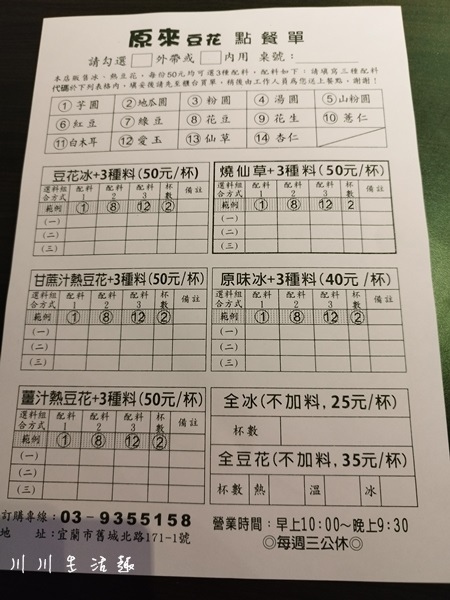 原來豆花 點餐單
請勾選 外帶或 內用 桌號：
本店販售冰、熱豆花，每份50元均可選3種配料，配料如下：請填寫三種配料
代碼於下列表格內，填妥後請先至櫃台買單，稍後由工作人員為您送上餐點，謝謝！
①芋圓 ②地瓜圓 ③粉圓 ④湯圓 ⑤山粉圓
⑥紅豆 ⑦綠豆 ⑧花豆 ⑨花生 ⑩薏仁
⑪白木耳 ⑫愛玉 ⑬仙草 ⑭杏仁
豆花冰+3種料(50元/杯)
選料組合方式 配料1 配料2 配料3 杯數 備註
範例 ① ⑧ ⑫ ②
(一)
(二)
(三)
燒仙草+3種料(50元/杯)
選料組合方式 配料1 配料2 配料3 杯數 備註
範例 ① ⑧ ⑫ 2
(一)
(二)
(三)
甘蔗汁熱豆花+3種料(50元/杯)
選料組合方式 配料1 配料2 配料3 杯數 備註
範例 ① ⑧ ⑫ ②
(一)
(二)
(三)
原味冰+3種料(40元/杯)
選料組合方式 配料1 配料2 配料3 杯數 備註
範例 ① ⑧ ⑫ ②
(一)
(二)
(三)
薑汁熱豆花+3種料(50元/杯)
選料組合方式 配料1 配料2 配料3 杯數 備註
範例 ① ⑧ ⑫ ②
(一)
(二)
(三)
全冰(不加料,25元/杯)
杯數
全豆花(不加料,35元/杯)
杯數 熱 溫 冰
訂購專線：03-9355158
地 址:宜蘭市舊城北路171-1號
營業時間：早上10:00～晚上9:30
◎每週三公休◎
川川生活趣